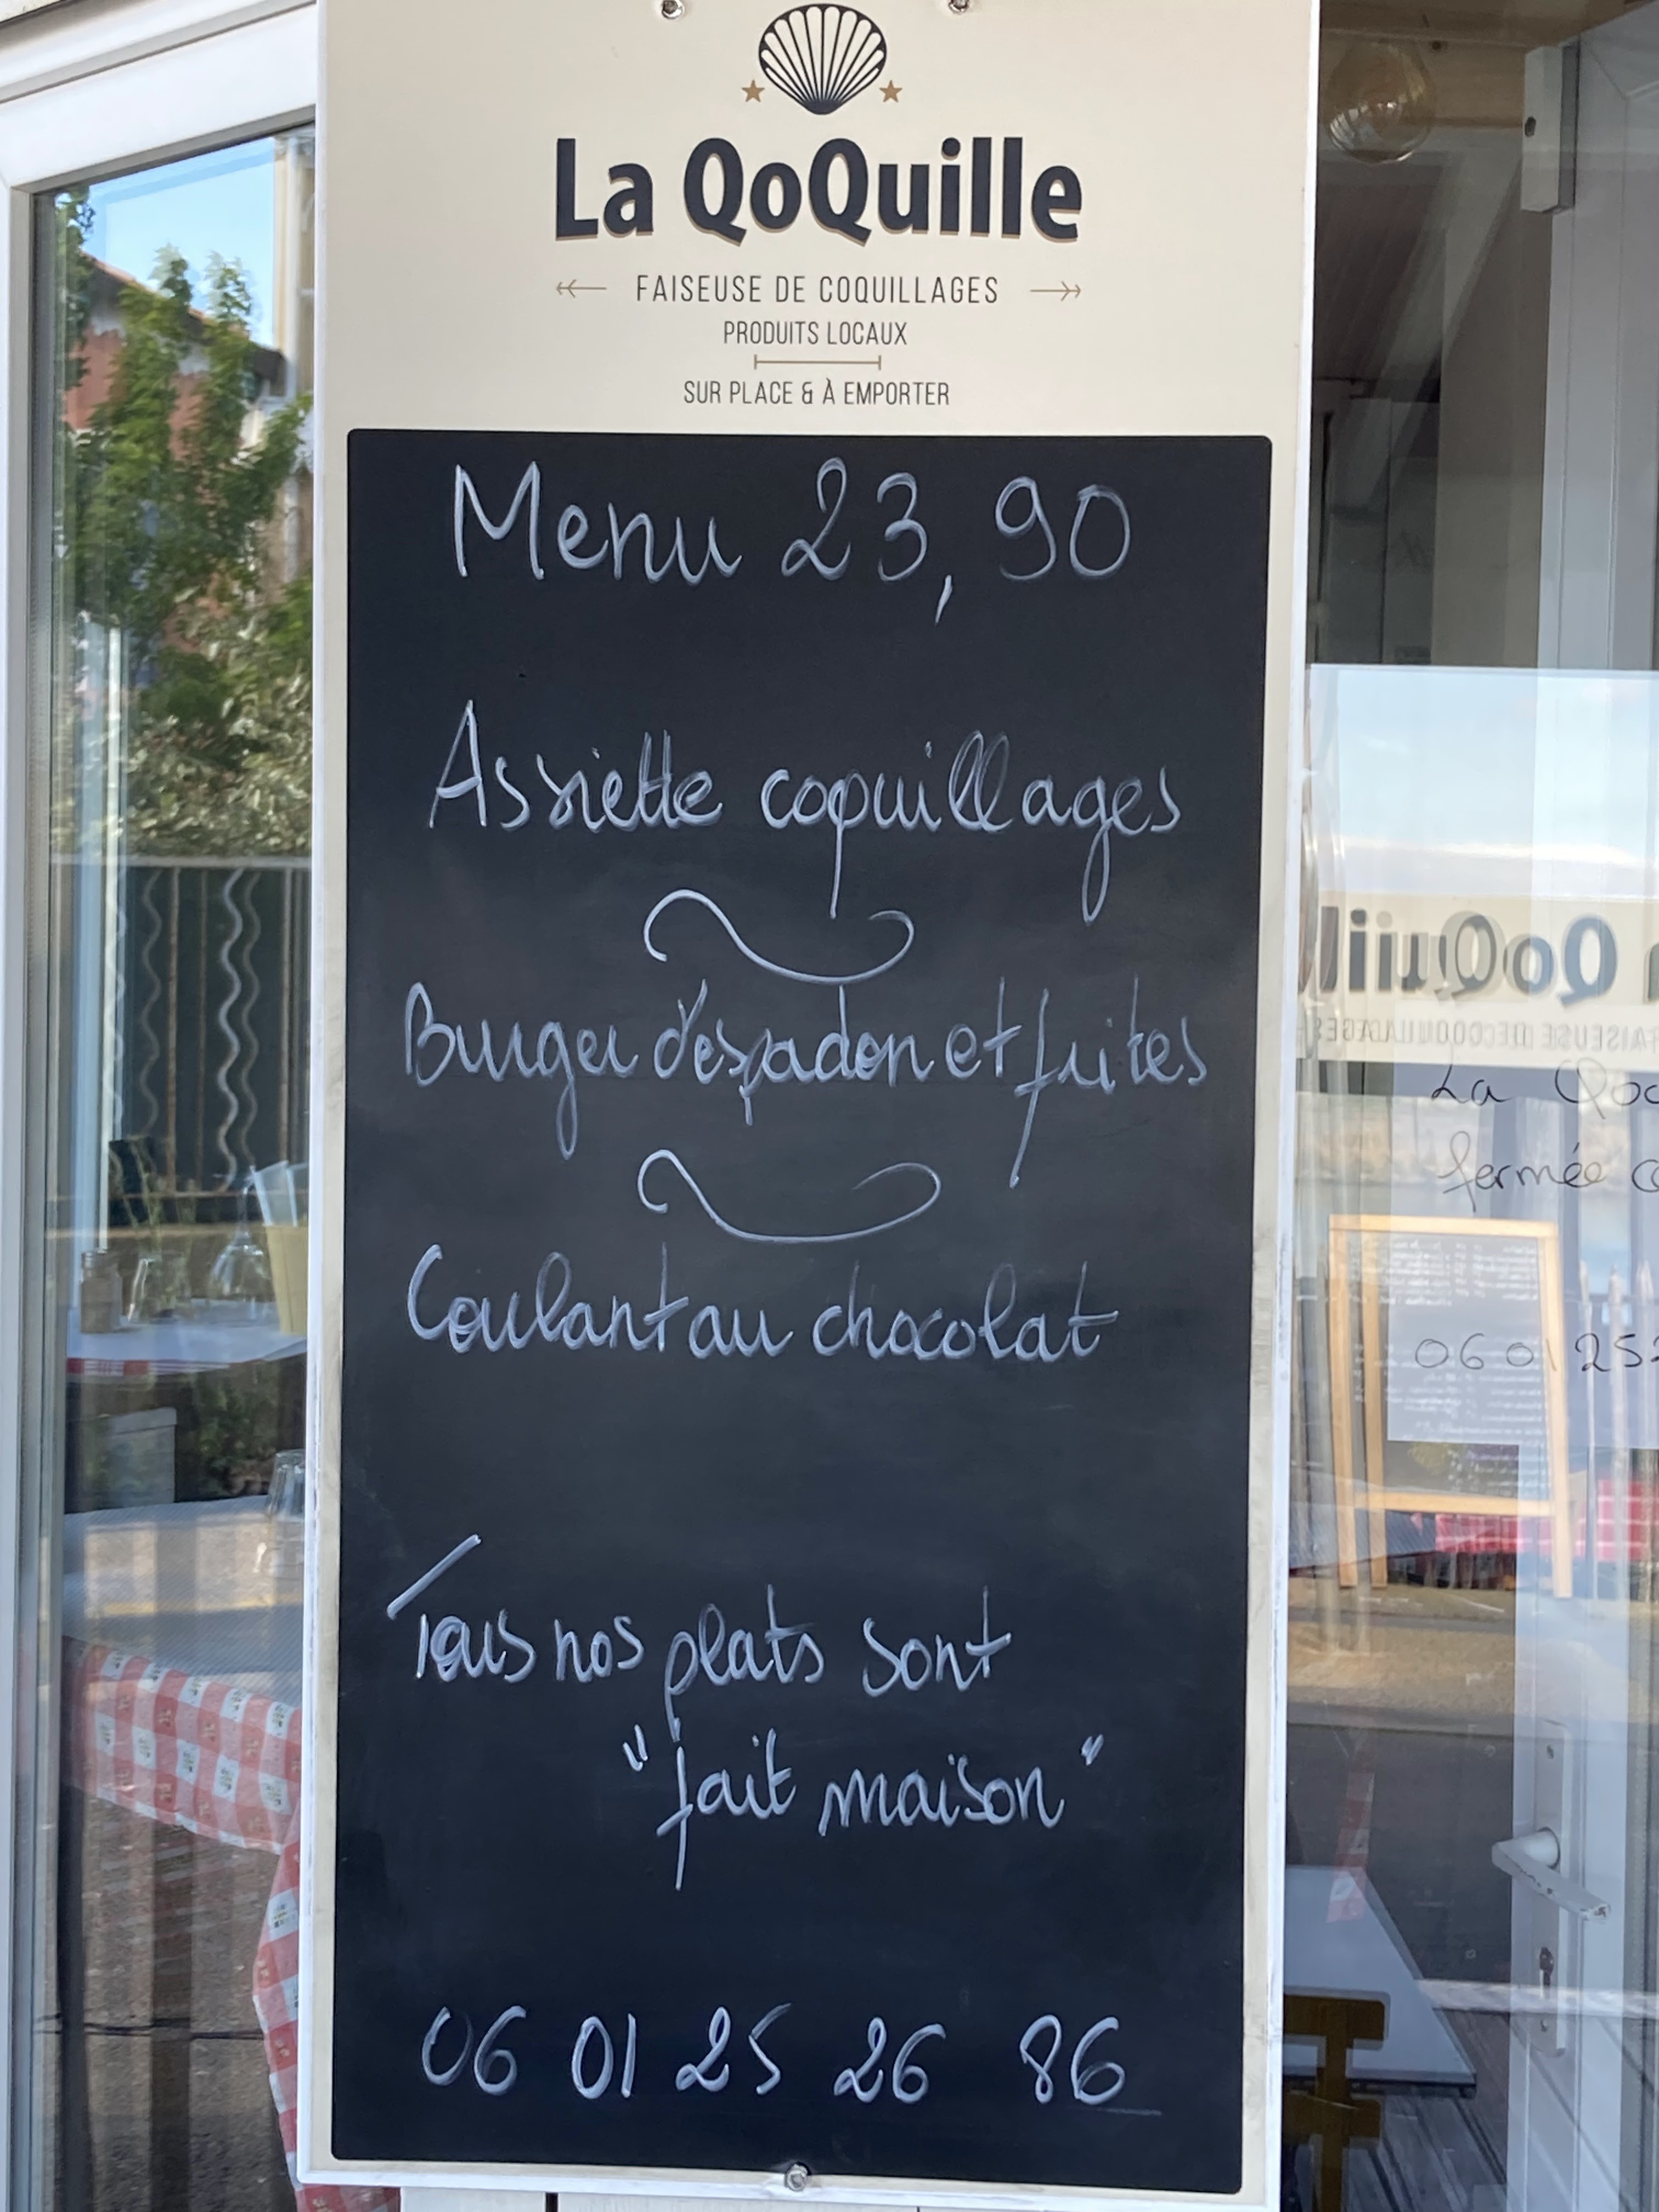 La QoQuille
FAISEUSE DE COQUILLAGES
PRODUITS LOCAUX
SUR PLACE & À EMPORTER
Menu 23,90
Assiette coquillages
Burger d'espadon et frites
Coulant au chocolat
Tous nos plats sont
"fait maison"
06 01 25 26 86
QoQuill
FAISEUSE DE COQUILLAGES
La Qoq
fermée
06 01 252